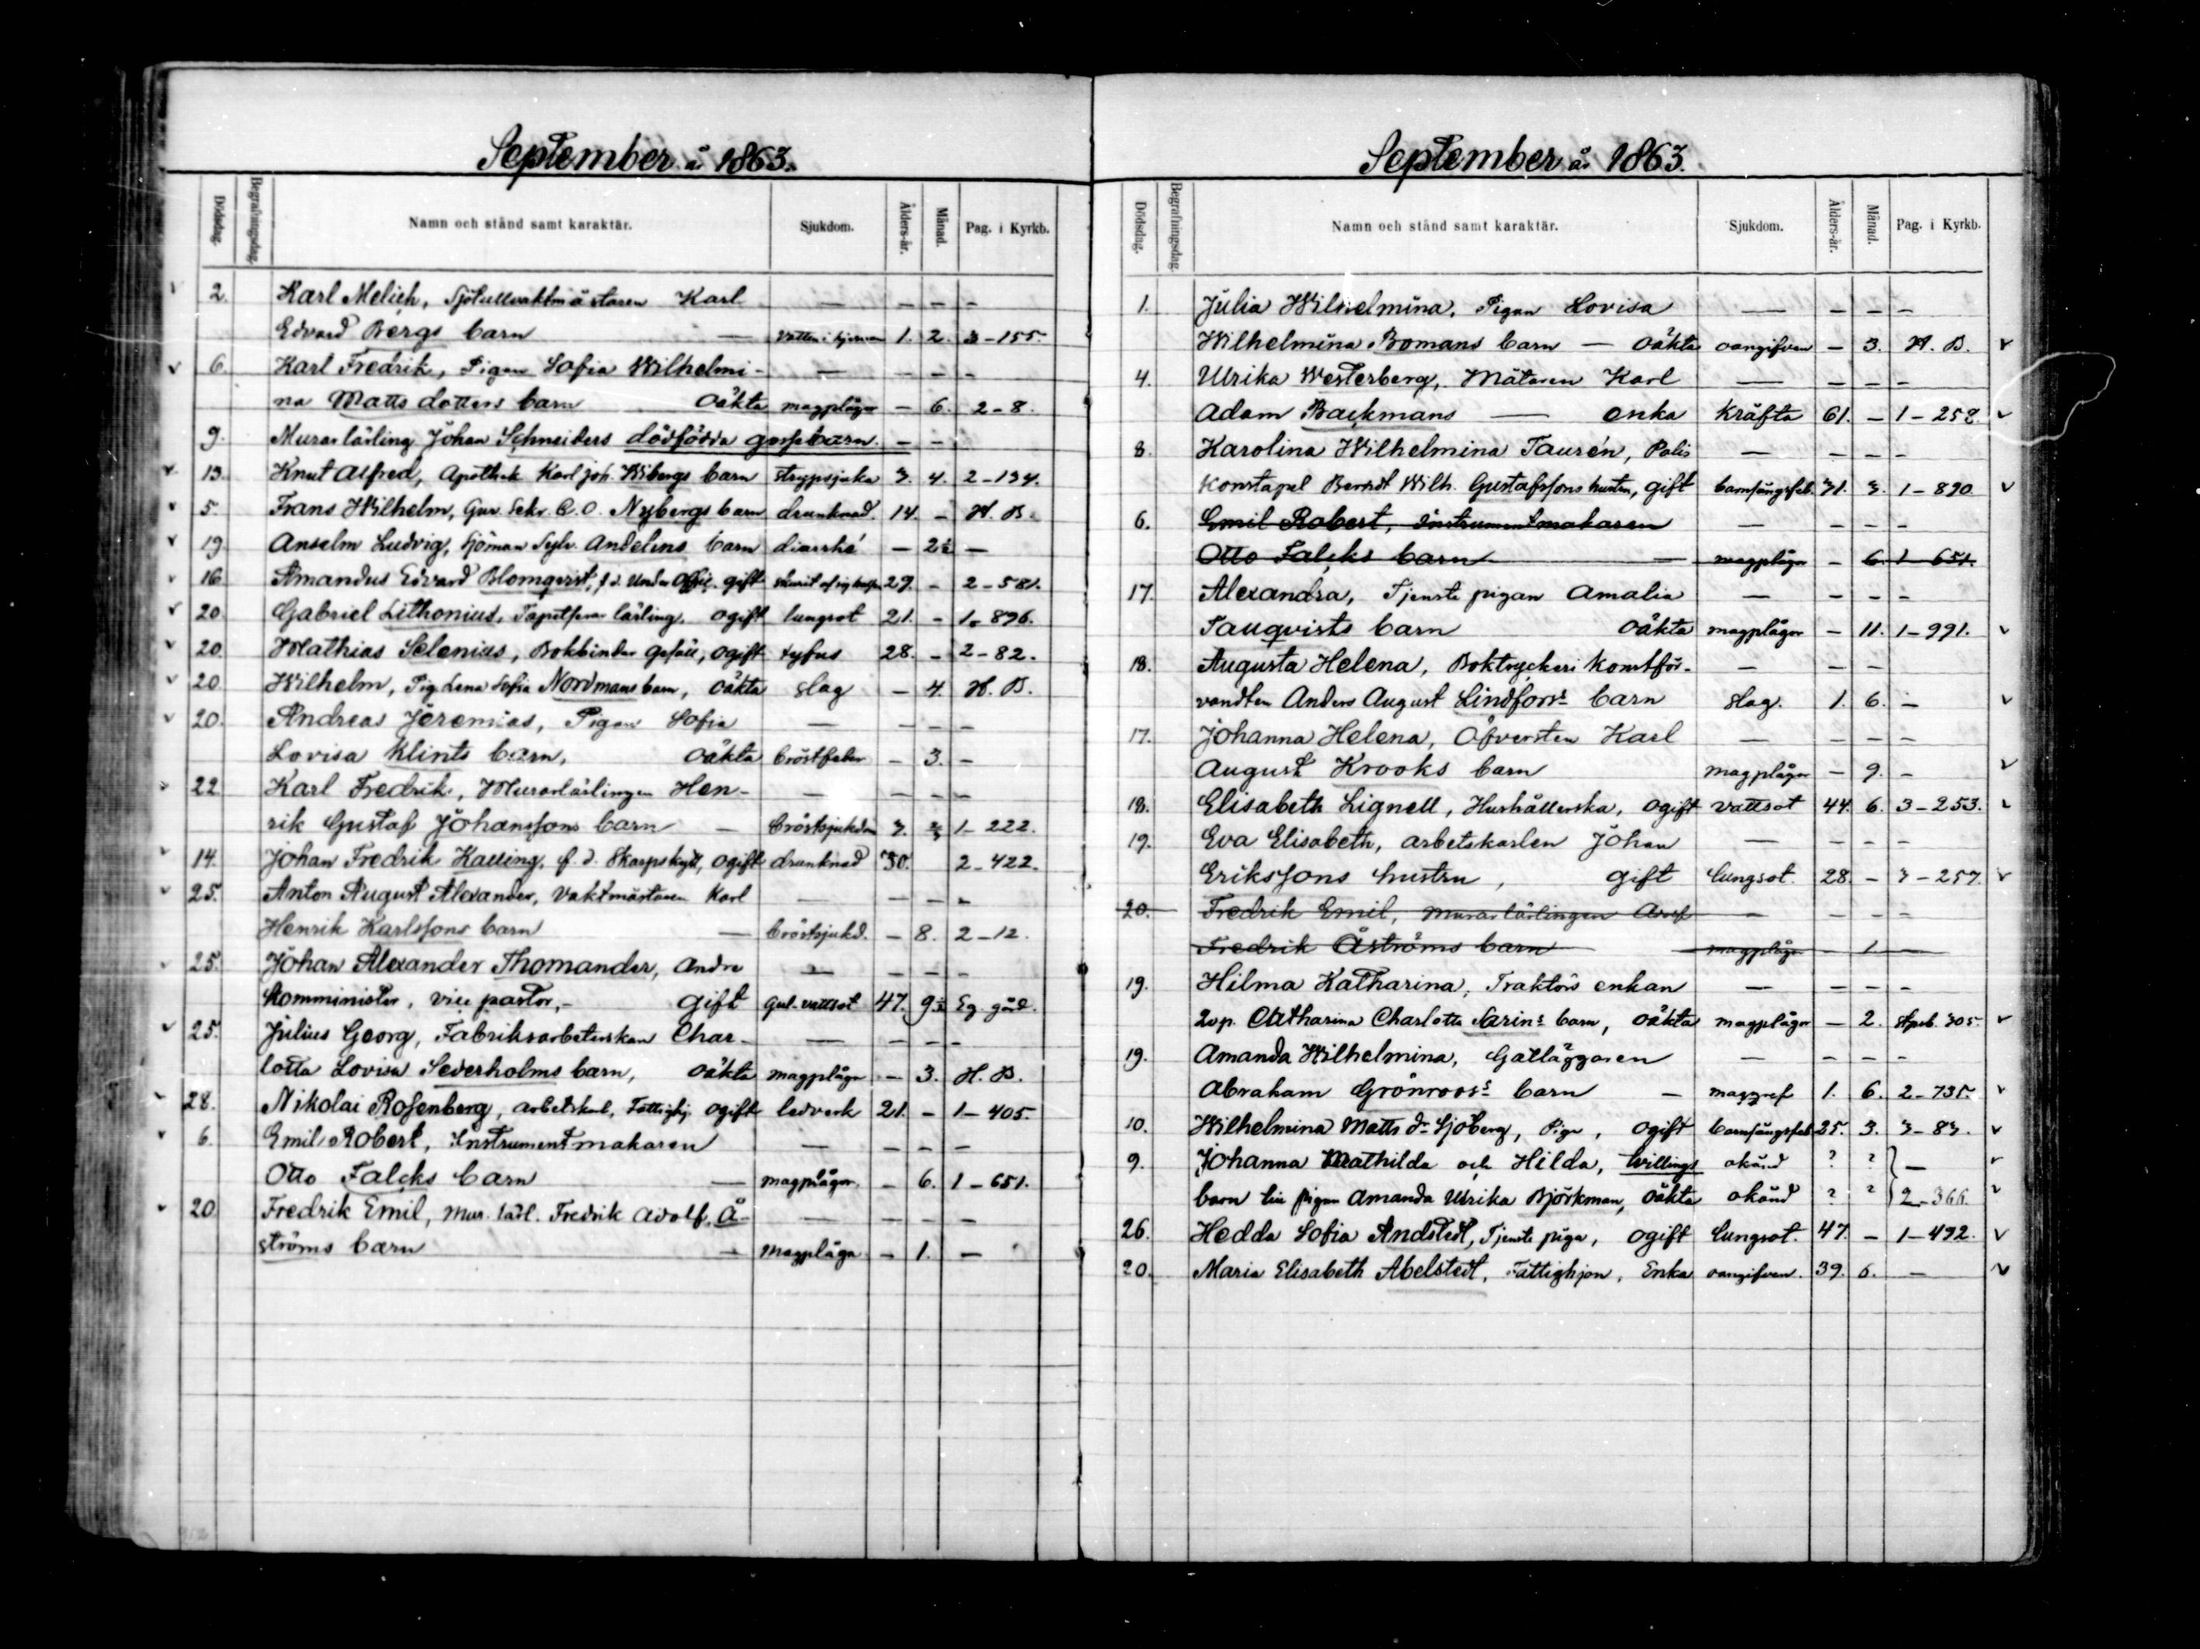 September år 1863.
Dödsdag. Begrafningsdag. Namn och stånd samt karaktär. Sjukdom. Ålders-år. Månad. Pag. i Kyrkb.
2. Karl Melich, Sjötullvaktmästaren Karl — — — —
Edvard Bergs barn — Vatten i hjernan 1. 2. 3-155.
6. Karl Fredrik, Pigan Sofia Wilhelmi- — — — —
na Matts dotters barn oäkta magplågor — 6. 2-8.
9. Murarlärling Johan Schneiders dödfödda gossebarn. — —
13. Knut Alfred, Apothek. Karl Joh. Wibergs barn strypsjuka 3. 4. 2-134.
5. Frans Wilhelm, Guv. Sekr. C. O. Nybergs barn drunknad. 14. — H. B.
19. Anselm Ludvig, sjöman Sylv. Andelins barn diarrhé — 2½ —
16. Amandus Edvard Blomqvist, f.d. Under Offic. gift 29. — 2-581.
20. Gabriel Lithonius, Tapetserar lärling, ogift lungsot 21. — 1-896.
20. Mathias Selenius, Bokbindar gesäll, ogift tyfus 28. — 2-82.
20. Wilhelm, Pig. Lena Sofia Nordmans barn, oäkta slag — 4. H. B.
20. Andreas Jeremias, Pigan Sofia — — — —
Lovisa Klints barn, oäkta bröstfeber — 3. —
22. Karl Fredrik, Murarlärlingen Hen- — — — —
rik Gustaf Johanssons barn — bröstsjukdom 3. 1-222.
14. Johan Fredrik Kalling, f. d. Skarpskytt, ogift drunknad 30. 2-422.
25. Anton August Alexander, Vaktmästaren Karl — — — —
Henrik Karlssons barn — bröstsjukd. — 8. 2-12.
25. Johan Alexander Thomander, Andre — — — —
Komminister, vice pastor,- gift Gul. vattsot 47. 9½ Eg. gård.
25. Julius Georg, Fabriksarbeterskan Char- — — — —
lotta Lovisa Sederholms barn, oäkta magplågor — 3. H. B.
28. Nikolai Rosenberg, arbetskarl, Fattighj. ogift ledverk 21. — 1-405.
6. Emil Robert, Instrumentmakaren — — — —
Otto Falcks barn — magplågor. — 6. 1-651.
20. Fredrik Emil, Mur. lärl. Fredrik Adolf Å- — — — —
ströms barn — Magplågor — 1. —
September år 1863.
Dödsdag. Begrafningsdag. Namn och stånd samt karaktär. Sjukdom. Ålders-år. Månad. Pag. i Kyrkb.
1. Julia Wilhelmina, Pigan Lovisa — — — —
Wilhelmina Bomans barn — oäkta oangifven — 3. H. B.
4. Ulrika Westerberg, Mätaren Karl — — — —
Adam Backmans — enka Kräfta 61. — 1-258.
8. Karolina Wilhelmina Taurén, Polis — — — —
konstapel Berndt Wilh. Gustafssons hustru, gift barnsängsfeb. 31. 3. 1-890
6. Emil Robert, Instrumentmakaren — — — —
Otto Falcks barn — magplågor — 6. 1-651.
17. Alexandra, Tjenste pigan Amalia — — — —
Tauqvists barn oäkta magplågor — 11. 1-991.
18. Augusta Helena, Boktryckeri konstför- — — —
vandten Anders August Lindfors's barn slag. 1. 6. —
17. Johanna Helena, Öfversten Karl — — — —
August Krooks barn magplågor — 9. —
18. Elisabeth Lignell, Hushållerska, ogift vattsot 44. 6. 3-253.
19. Eva Elisabeth, arbetskarlen Johan — — — —
Erikssons hustru, gift lungsot. 28. — 3-257.
20. Fredrik Emil, murarlärlingen Adolf — — — —
Fredrik Åströms barn magplågor — 1 —
19. Hilma Katharina, Traktörs enkan — — — —
Catharina Charlotta Sarins barn, oäkta magplågor — 2. 305.
19. Amanda Wilhelmina, Gatläggaren — — — —
Abraham Grönroos's barn — magref 1. 6. 2-735.
10. Wilhelmina Matts dr Sjöberg, Piga, ogift barnsängsfeb 25. 3. 3-83.
9. Johanna Mathilda och Hilda, tvillings okänd ? ? —
barn till pigan Amanda Ulrika Björkman, oäkta okänd ? ? 2-366.
26. Hedda Sofia Andstedt, Tjenste piga, ogift lungsot. 47. — 1-492.
20. Maria Elisabeth Abelstedt, Fattighjon, Enka oangifven. 39. 6. —